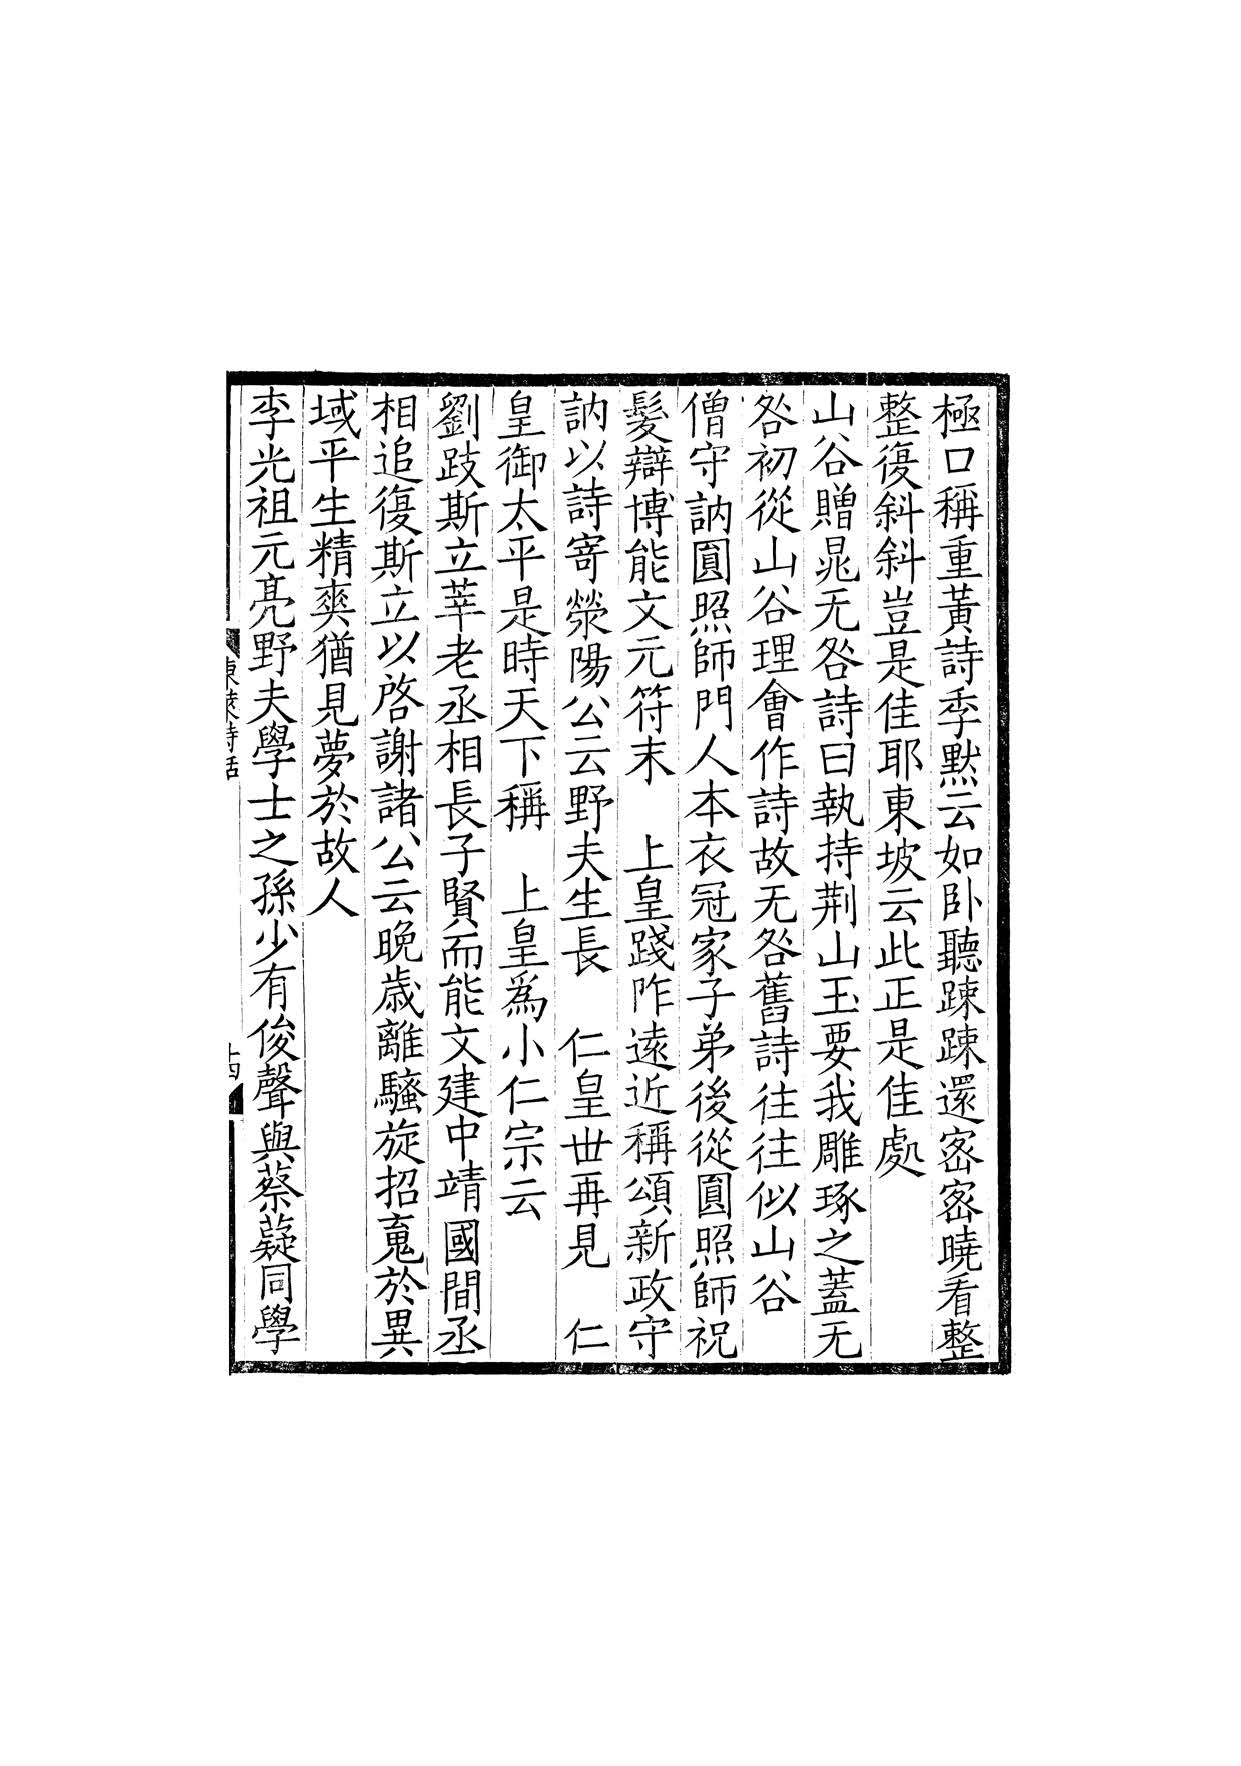 極口稱重黃詩季默云如卧聽踈踈還密密曉看整
整復斜斜豈是佳耶東坡云此正是佳處
山谷贈晁无咎詩曰執持荆山玉要我雕琢之蓋无
咎初從山谷理會作詩故无咎舊詩往往似山谷
僧守訥圓照師門人本衣冠家子弟後從圓照師祝
髪辯博能文元符末　上皇踐阼遠近稱頌新政守
訥以詩寄滎陽公云野夫生長　仁皇世再見　仁
皇御太平是時天下稱　上皇爲小仁宗云
劉跂斯立莘老丞相長子賢而能文建中靖國間丞
相追復斯立以啓謝諸公云晚歳離騷旋招䰟於異
域平生精爽猶見夢於故人
李光祖元亮野夫學士之孫少有俊聲與蔡薿同學
東萊詩話
十四